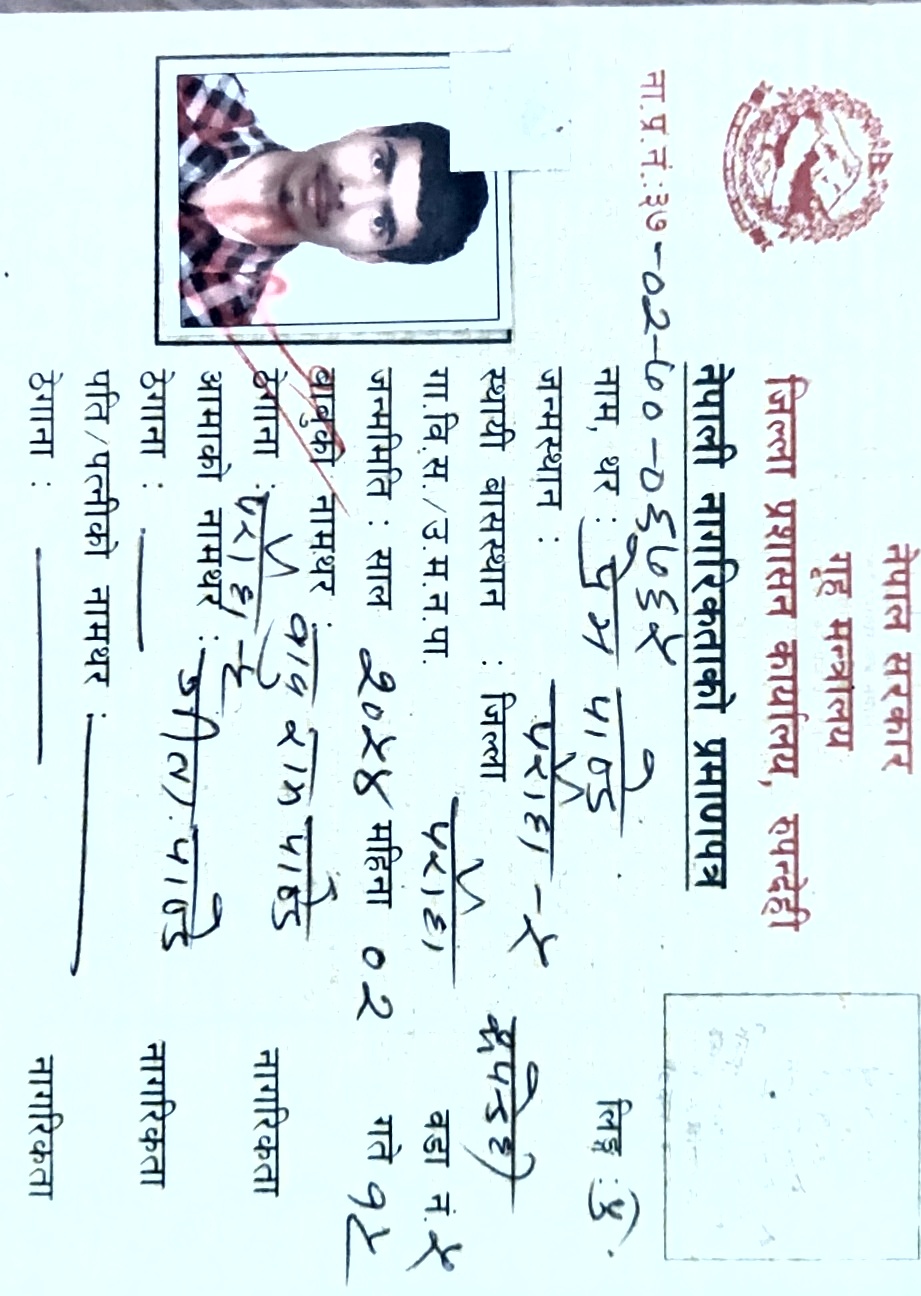 नेपाल सरकार
गृह मन्त्रालय
जिल्ला प्रशासन कार्यालय, रुपन्देही
नेपाली नागरिकताको प्रमाणपत्र
ना.प्र.नं.:३७-०२-७०-०६७६५
नाम, थर : प्रेम पाण्डे लिङ्ग : पु.
जन्मस्थान : पर्रोहा - ५
स्थायी बासस्थान : जिल्ला रुपन्देही
गा.वि.स./उ.म.न.पा. पर्रोहा वडा नं. ५
जन्ममिति : साल २०५४ महिना ०२ गते १५
बाबुको नामथर : बाबु राम पाण्डे
ठेगाना : पर्रोहा नागरिकता
आमाको नामथर : गीता पाण्डे
ठेगाना : नागरिकता
पति/पत्नीको नामथर :
ठेगाना : नागरिकता